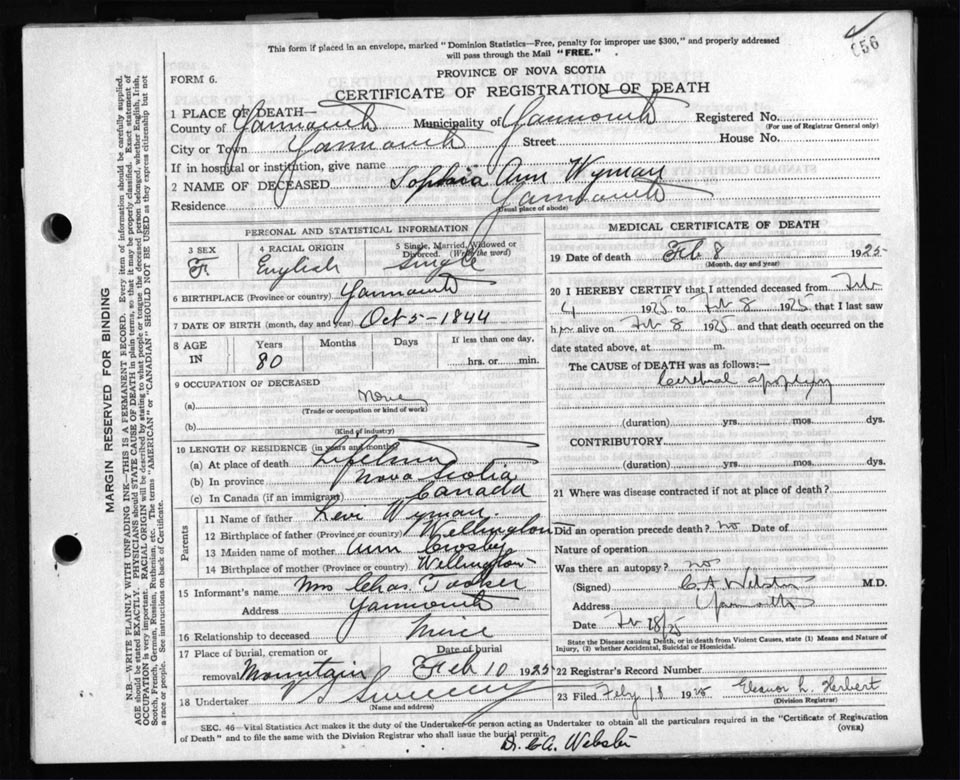 This form if placed in an envelope, marked "Dominion Statistics—Free, penalty for improper use $300," and properly addressed
will pass through the Mail "FREE."
056
FORM 6.
PROVINCE OF NOVA SCOTIA
CERTIFICATE OF REGISTRATION OF DEATH
1 PLACE OF DEATH—
County of Yarmouth Municipality of Yarmouth Registered No.
(For use of Registrar General only)
City or Town Yarmouth Street House No.
If in hospital or institution, give name
2 NAME OF DECEASED Sophia Ann Wyman
Residence Yarmouth
(Usual place of abode)
PERSONAL AND STATISTICAL INFORMATION
3 SEX F. 4 RACIAL ORIGIN English 5 Single, Married, Widowed or Divorced. (Write the word) Single
6 BIRTHPLACE (Province or country) Yarmouth
7 DATE OF BIRTH (month, day and year) Oct 5-1844
8 AGE IN Years 80 Months Days If less than one day, hrs. or min.
9 OCCUPATION OF DECEASED
(a) None
(Trade or occupation or kind of work)
(b)
(Kind of industry)
10 LENGTH OF RESIDENCE (in years and months)
(a) At place of death Lifetime
(b) In province Nova Scotia
(c) In Canada (if an immigrant) Canada
Parents
11 Name of father Levi Wyman.
12 Birthplace of father (Province or country) Wellington
13 Maiden name of mother Ann Crosby
14 Birthplace of mother (Province or country) Wellington
15 Informant's name Mrs Chas. Tooker
Address Yarmouth
16 Relationship to deceased Niece
17 Place of burial, cremation or removal Mountain Date of burial Feb 10 1925
18 Undertaker Sweeny
(Name and address)
MEDICAL CERTIFICATE OF DEATH
19 Date of death Feb 8 1925
(Month, day and year)
20 I HEREBY CERTIFY that I attended deceased from Feb
4 1925 to Feb 8 1925 that I last saw
her alive on Feb 8 1925 and that death occurred on the
date stated above, at m.
The CAUSE of DEATH was as follows:
Cerebral apoplexy
(duration) yrs. mos. dys.
CONTRIBUTORY
(duration) yrs. mos. dys.
21 Where was disease contracted if not at place of death?
Did an operation precede death? no Date of
Nature of operation
Was there an autopsy? no
(Signed) C.A. Webster M.D.
Address Yarmouth
Date
State the Disease causing Death, or in death from Violent Causes, state (1) Means and Nature of
Injury, (2) whether Accidental, Suicidal or Homicidal.
22 Registrar's Record Number
23 Filed Feby 18 1925 Eleanor L. Herbert
(Division Registrar)
SEC. 46—Vital Statistics Act makes it the duty of the Undertaker or person acting as Undertaker to obtain all the particulars required in the "Certificate of Registration
of Death" and to file the same with the Division Registrar who shall issue the burial permit. (OVER)
Dr. C.A. Webster
MARGIN RESERVED FOR BINDING
N.B.—WRITE PLAINLY WITH UNFADING INK—THIS IS A PERMANENT RECORD. Every item of information should be carefully supplied.
AGE should be stated EXACTLY. PHYSICIANS should STATE CAUSE OF DEATH in plain terms, so that it may be properly classified. Exact statement of
OCCUPATION is very important. RACIAL ORIGIN will be described by stating to what people or tongue the deceased person belonged, whether English, Irish,
Scotch, French, German, Russian, Ruthenian, etc. The terms "AMERICAN" or "CANADIAN" SHOULD NOT BE USED as they express citizenship but not
a race or people. See instructions on back of Certificate.